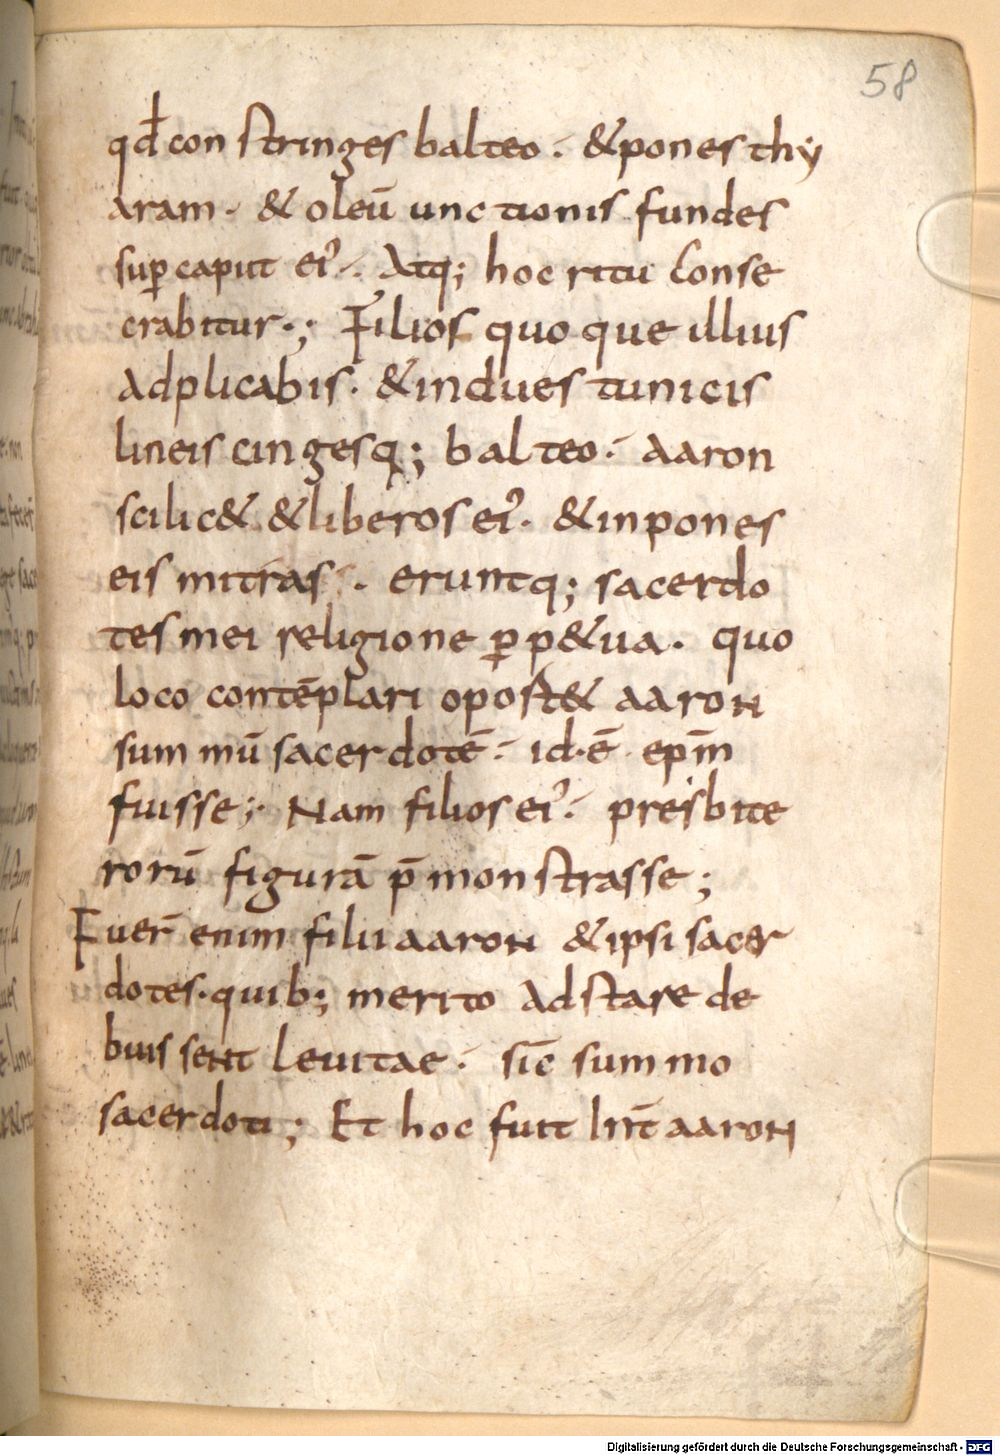 58
qđ constringes balteo. & pones thy
aram. & oleū unctionis fundes
suꝑ caput eiꝰ. Atq; hoc ritu conse
crabitur.; Filios quoque illius
adplicabis. & indues tunicis
lineis cingesq; balteo. aaron
scilic& & liberos eiꝰ. & inpones
eis mitras. eruntq; sacerdo
tes mei religione ꝑp&ua. quo
loco contēplari oport& aaron
summū sacerdotē. id.ē. ep̄m
fuisse; Nam filios eiꝰ. presbite
rorū figurā p̄monstrasse;
Fuer̄ enim filii aaron & ipsi sacer
dotes. quib; merito adstare de
buissent leuitae. sic̄ summo
sacerdoti; Et hoc fuit int̄ aaron
Digitalisierung gefördert durch die Deutsche Forschungsgemeinschaft - DFG